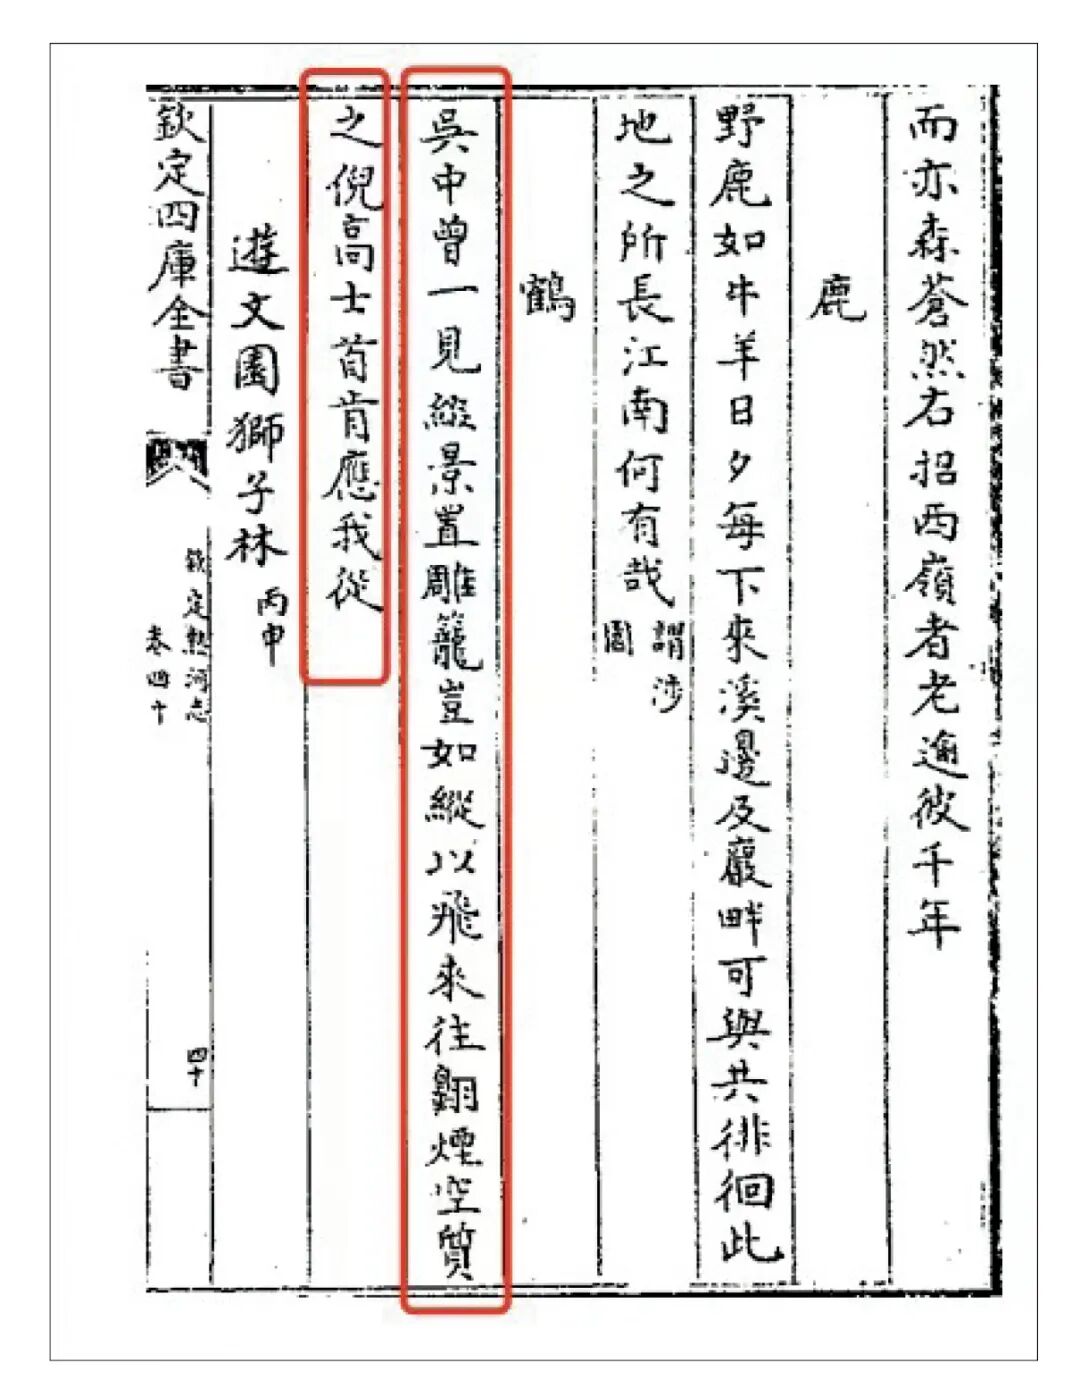 而亦森蒼然右招西嶺者老邁彼千年
鹿
野鹿如牛羊日夕每下來溪邊及巖畔可與共徘徊此
地之所長江南何有哉謂涉園
鶴
吳中曾一見縱景置雕籠豈如縱以飛來往翺煙空質
之倪高士首肯應我從
遊文園獅子林丙申
欽定四庫全書
欽定熱河志
卷四十
四十